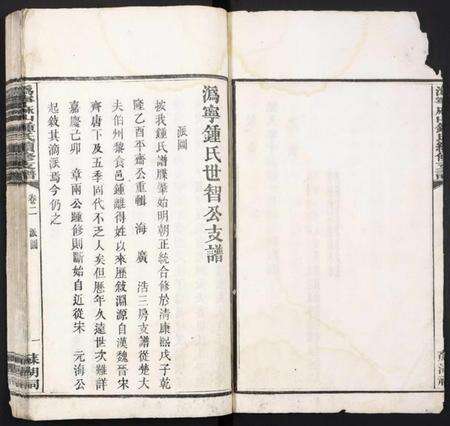 溈寧鍾氏世智公支譜
派圖
被我鍾氏譜牒肇始明朝正統合修於清康熙戊子乾
隆乙酉平齋公重輯 海 廣 浩三房支譜從楚大
夫伯州黎食邑鍾離得姓以來歷敘淵源自漢魏晉宋
齊唐下及五季同代不乏人矣但歷年久遠世次難詳
嘉慶己卯 章兩公踵修則斷始自近從宋 元海公
起敘其滴派焉今仍之
鍾氏續修支譜
卷二 派圖
一